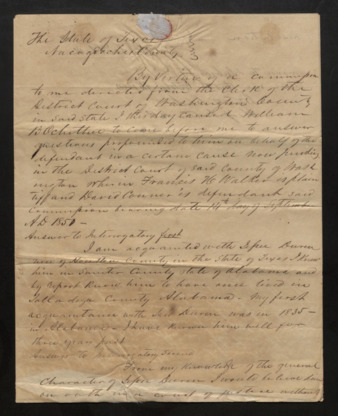 The State of Texas
Nacogdoches County
By Virtue of a Commission
to me directed from the Clerk of the
District Court of Washington County
in said State I this day caused William
to come before me to answer
questions propounded to him on behalf of the
defendant in a certain cause now pending
in the District Court of said County of Wash
ington wherein Francis W. is plain
tiff and David is defendant said
Commission bearing date 19th day of
AD 1851 -
Answer to Interrogatory first
I am acquainted with Jesse
of County in the State of Texas I knew
him in County State of Alabama and
by report knew him to have once lived in
Talladega County Alabama. My first
acquaintance with was in 1835 -
in Alabama I have known him well for
three years past
Answer to Interrogatory
From my knowledge of the general
Character of Jesse I would believe him
on oath in a court of justice